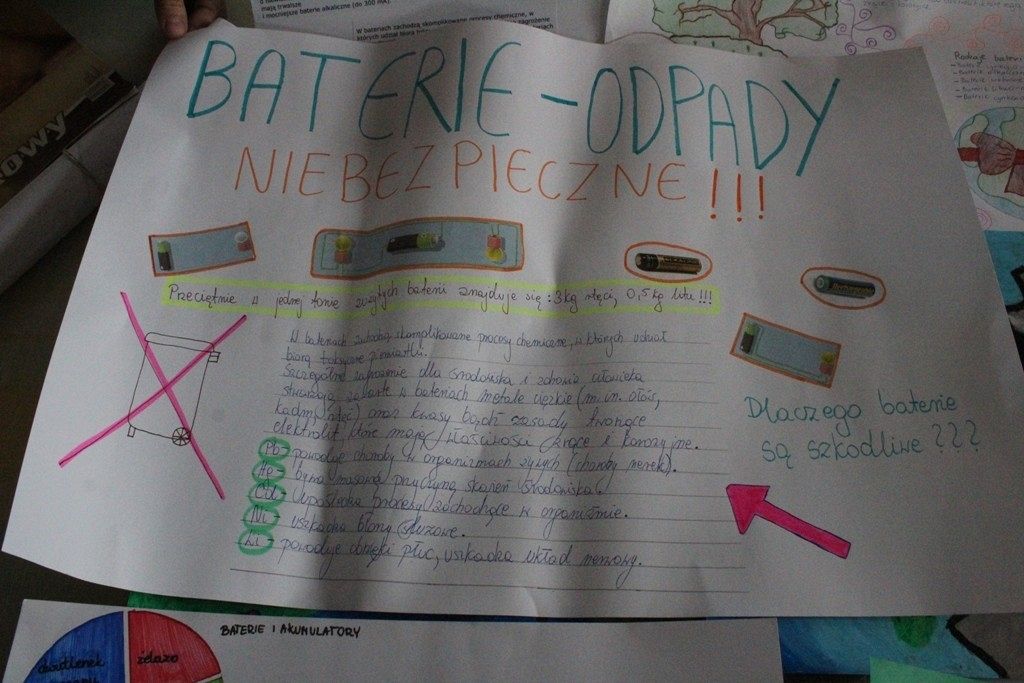 mają trwalsze
i mocniejsze baterie alkaliczne (do 300 mA).
W bateriach zachodzą skomplikowane procesy chemiczne, w
których udział biorą
zagrożenie
owy
Rodzaje baterii
BATERIE - ODPADY
NIEBEZPIECZNE!!!
Przeciętnie w jednej tonie zużytych baterii znajduje się: 3kg rtęci, 0,5kg litu!!!
W bateriach zachodzą skomplikowane procesy chemiczne, w których udział
biorą toksyczne pierwiastki.
Szczególne zagrożenie dla środowiska i zdrowia człowieka
stwarzają zawarte w bateriach metale ciężkie (m.in. ołów,
kadm, rtęć) oraz kwasy bądź zasady tworzące
elektrolit, które mają właściwości żrące i korozyjne.
Pb - powoduje choroby w organizmach żywych (choroby nerek).
- była masową przyczyną skażeń środowiska.
Cd - Upośledza procesy zachodzące w organizmie.
Ni - uszkadza błony śluzowe.
Li - powoduje obrzęki płuc, uszkadza układ nerwowy.
Dlaczego baterie
są szkodliwe ???
BATERIE I AKUMULATORY
żelazo